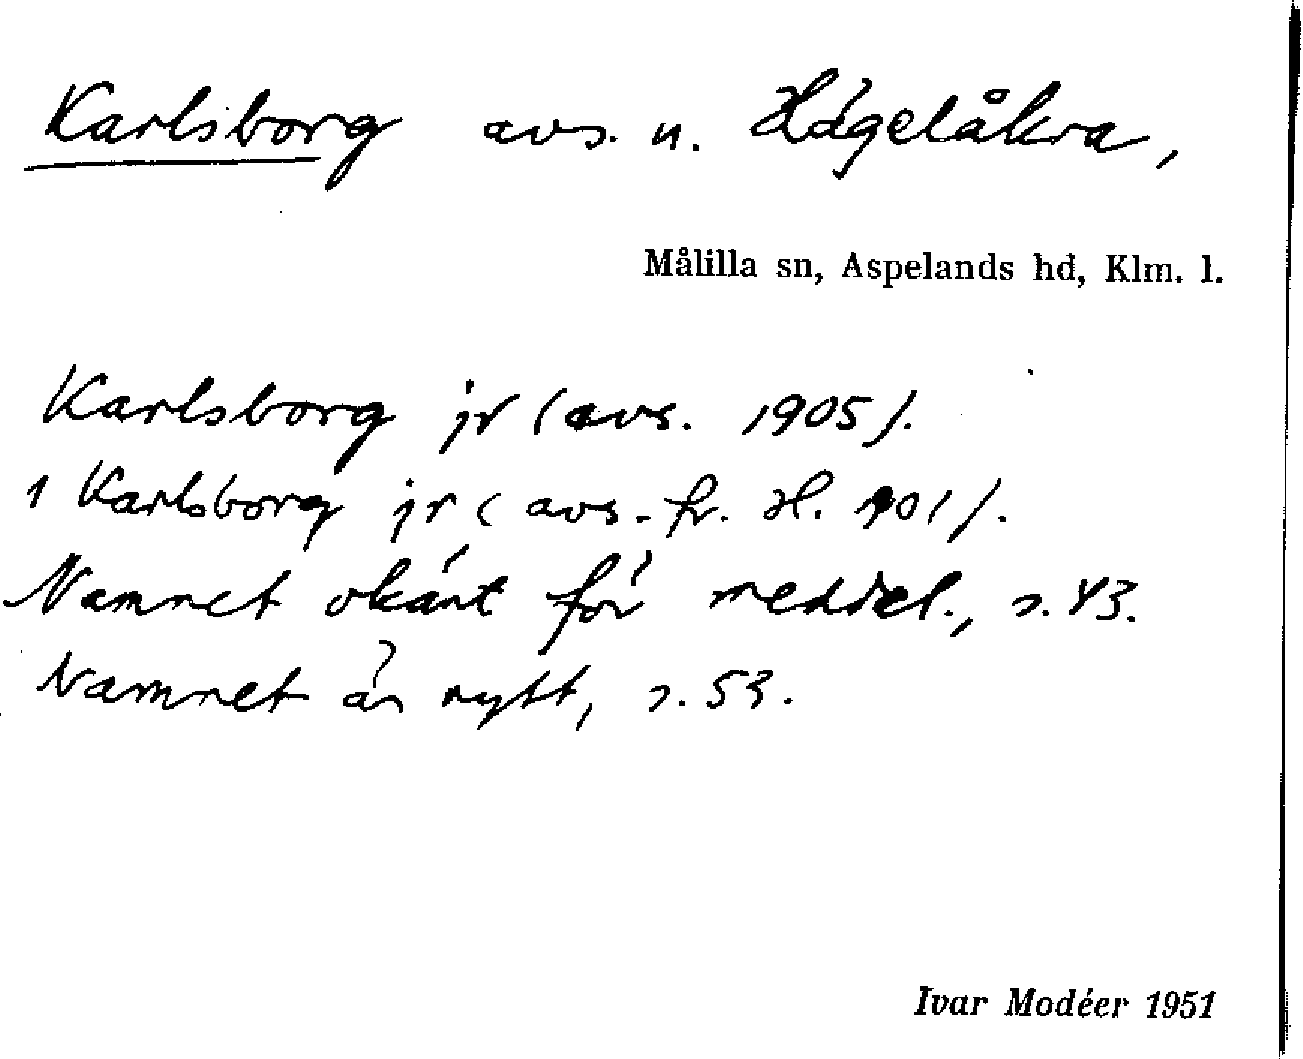 Karlsborg avs. u. Hägelåkra,
Målilla sn, Aspelands hd, Klm. l.
Karlsborg jr (avs. 1905).
1 Karlsborg jr (avs. fr. H. 1901).
Namnet okänt för meddel., s. 43.
Namnet är nytt, s. 53.
Ivar Modéer 1951